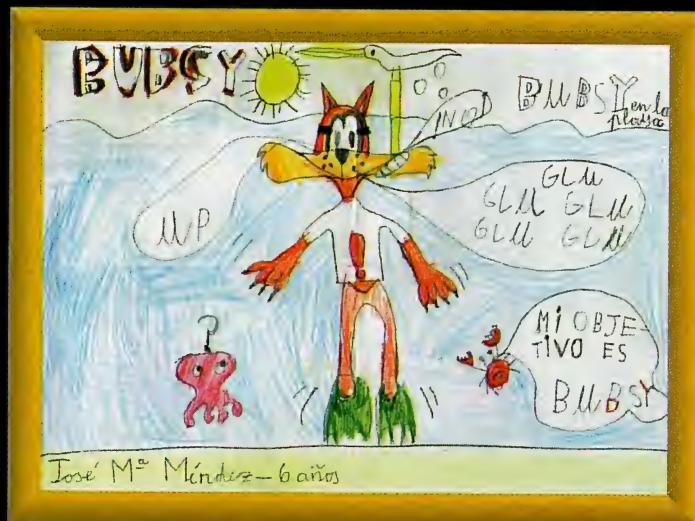 BUBSY
BUBSY
en la
playa
UP
GLU
GLU GLU
GLU GLU
?
MI OBJE-
TIVO ES
BUBSY
José Mª Méndez - 6 años